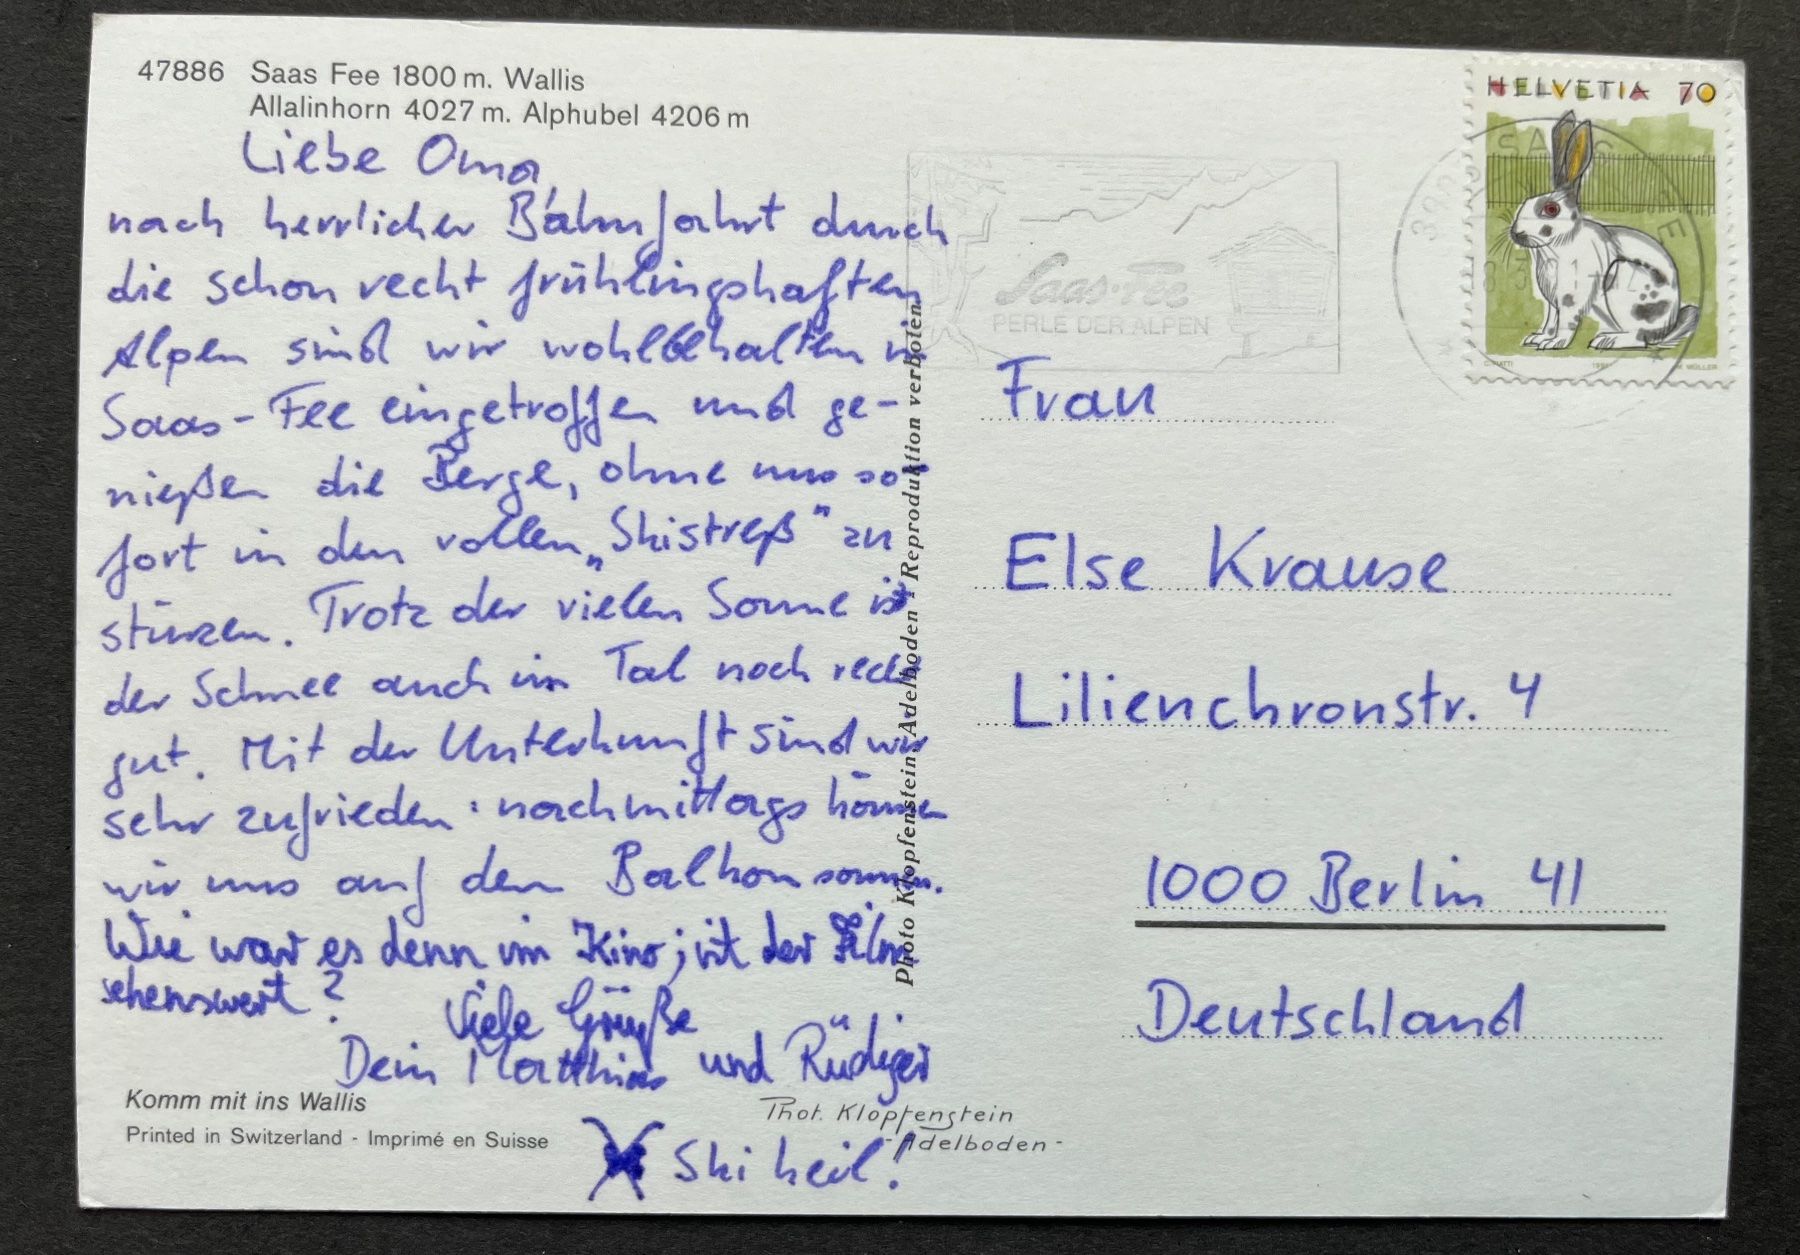 47886 Saas Fee 1800 m. Wallis
Allalinhorn 4027 m. Alphubel 4206 m
Liebe Oma
nach herrlicher Bahnfahrt durch
die schon recht frühlingshaften
Alpen sind wir wohlbehalten in
Saas-Fee eingetroffen und ge-
nießen die Berge, ohne uns so-
fort in den vollen „Skistreß" zu
stürzen. Trotz der vielen Sonne ist
der Schnee auch im Tal noch recht
gut. Mit der Unterkunft sind wir
sehr zufrieden: nachmittags können
wir uns auf dem Balkon sonnen.
Wie war es denn im Kino; ist der Film
sehenswert?
Viele Grüße
Dein Matthias und Rüdiger
Ski heil!
Komm mit ins Wallis
Printed in Switzerland - Imprimé en Suisse
Phot. Klopfenstein
- Adelboden -
Photo Klopfenstein, Adelboden Reproduktion verboten
Saas-Fee
PERLE DER ALPEN
HELVETIA 70
SAAS
Frau
Else Krause
Lilienchronstr. 4
1000 Berlin 41
Deutschland